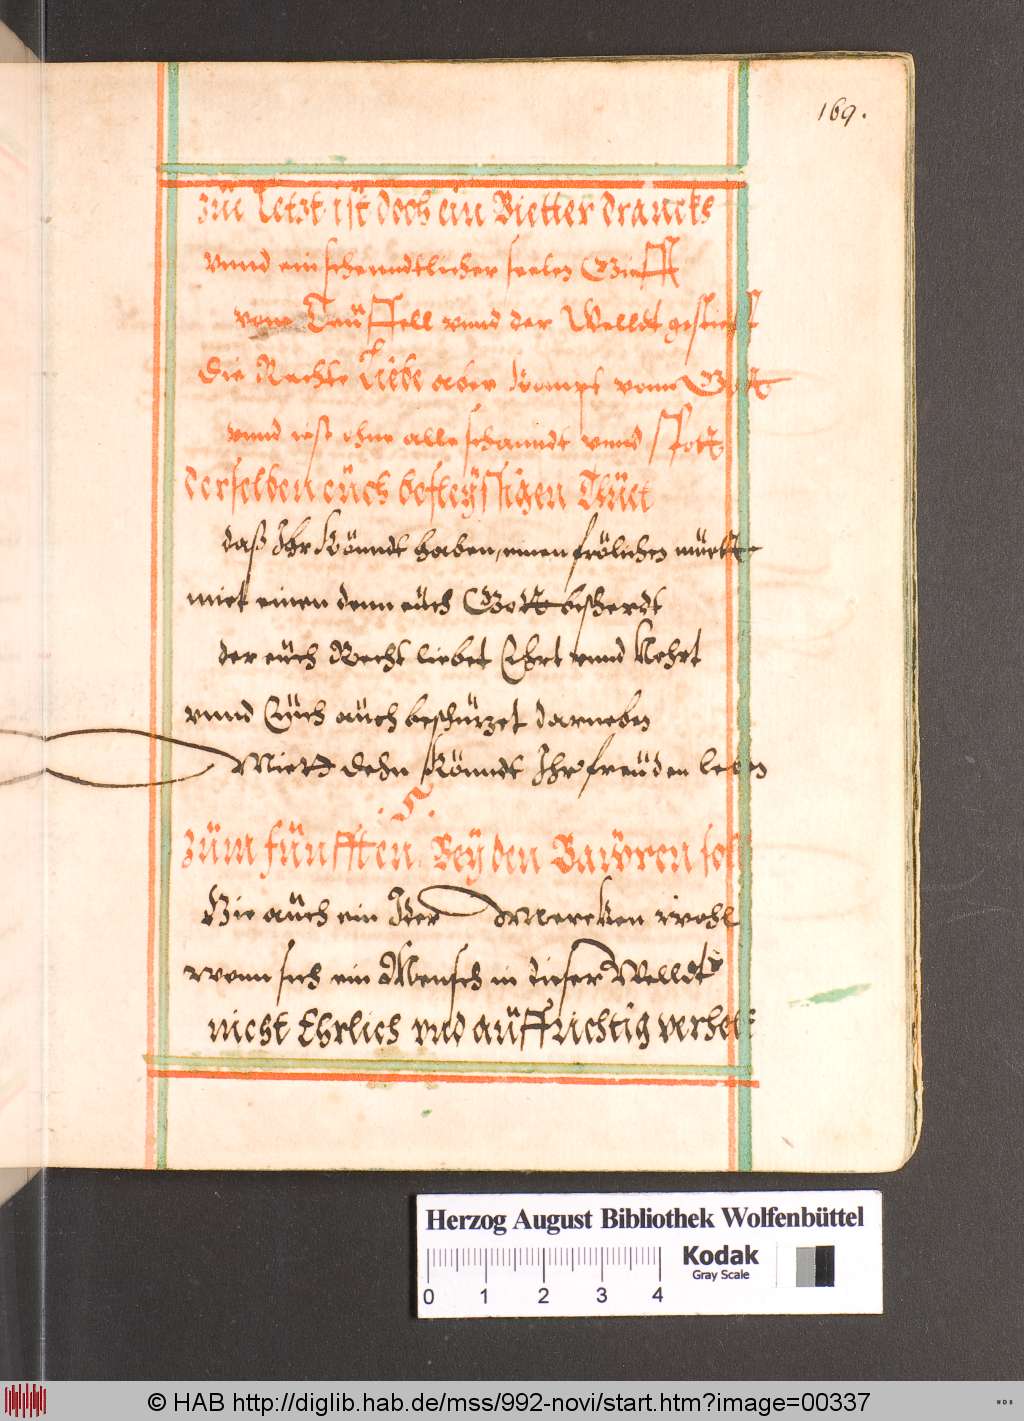 169.
zŭ Letzt ist doch ein Bietter dranckh
vnnd ein schenndtlicher seelen Gifft
vom Teŭffell vnnd der Welldt gestiefft
die Rechte Liebe aber kompt vonn Gott
vnnd ist ohne alle schanndt vnnd spott
derselben eŭch befleÿssigen Thŭet
daß Ihr könndt haben einen frölichen mŭett
miet einen denn eŭch Gott bescherdt
der eŭch Recht liebet Ehrt vnnd Nehrt
vnnd Eŭch aŭch beschützet darneben
Miett dehn könndt Ihr freŭden leben
.5.
zŭm fŭnfften Beÿ den Bawren soll
Hie aŭch ein Jder Mercken wohl
wenn sich ein Mensch in dieser Welldt
nicht Ehrlich vnd aŭffrichtig verhelt
Herzog August Bibliothek Wolfenbüttel
Kodak
Gray Scale
0 1 2 3 4
© HAB http://diglib.hab.de/mss/992-novi/start.htm?image=00337